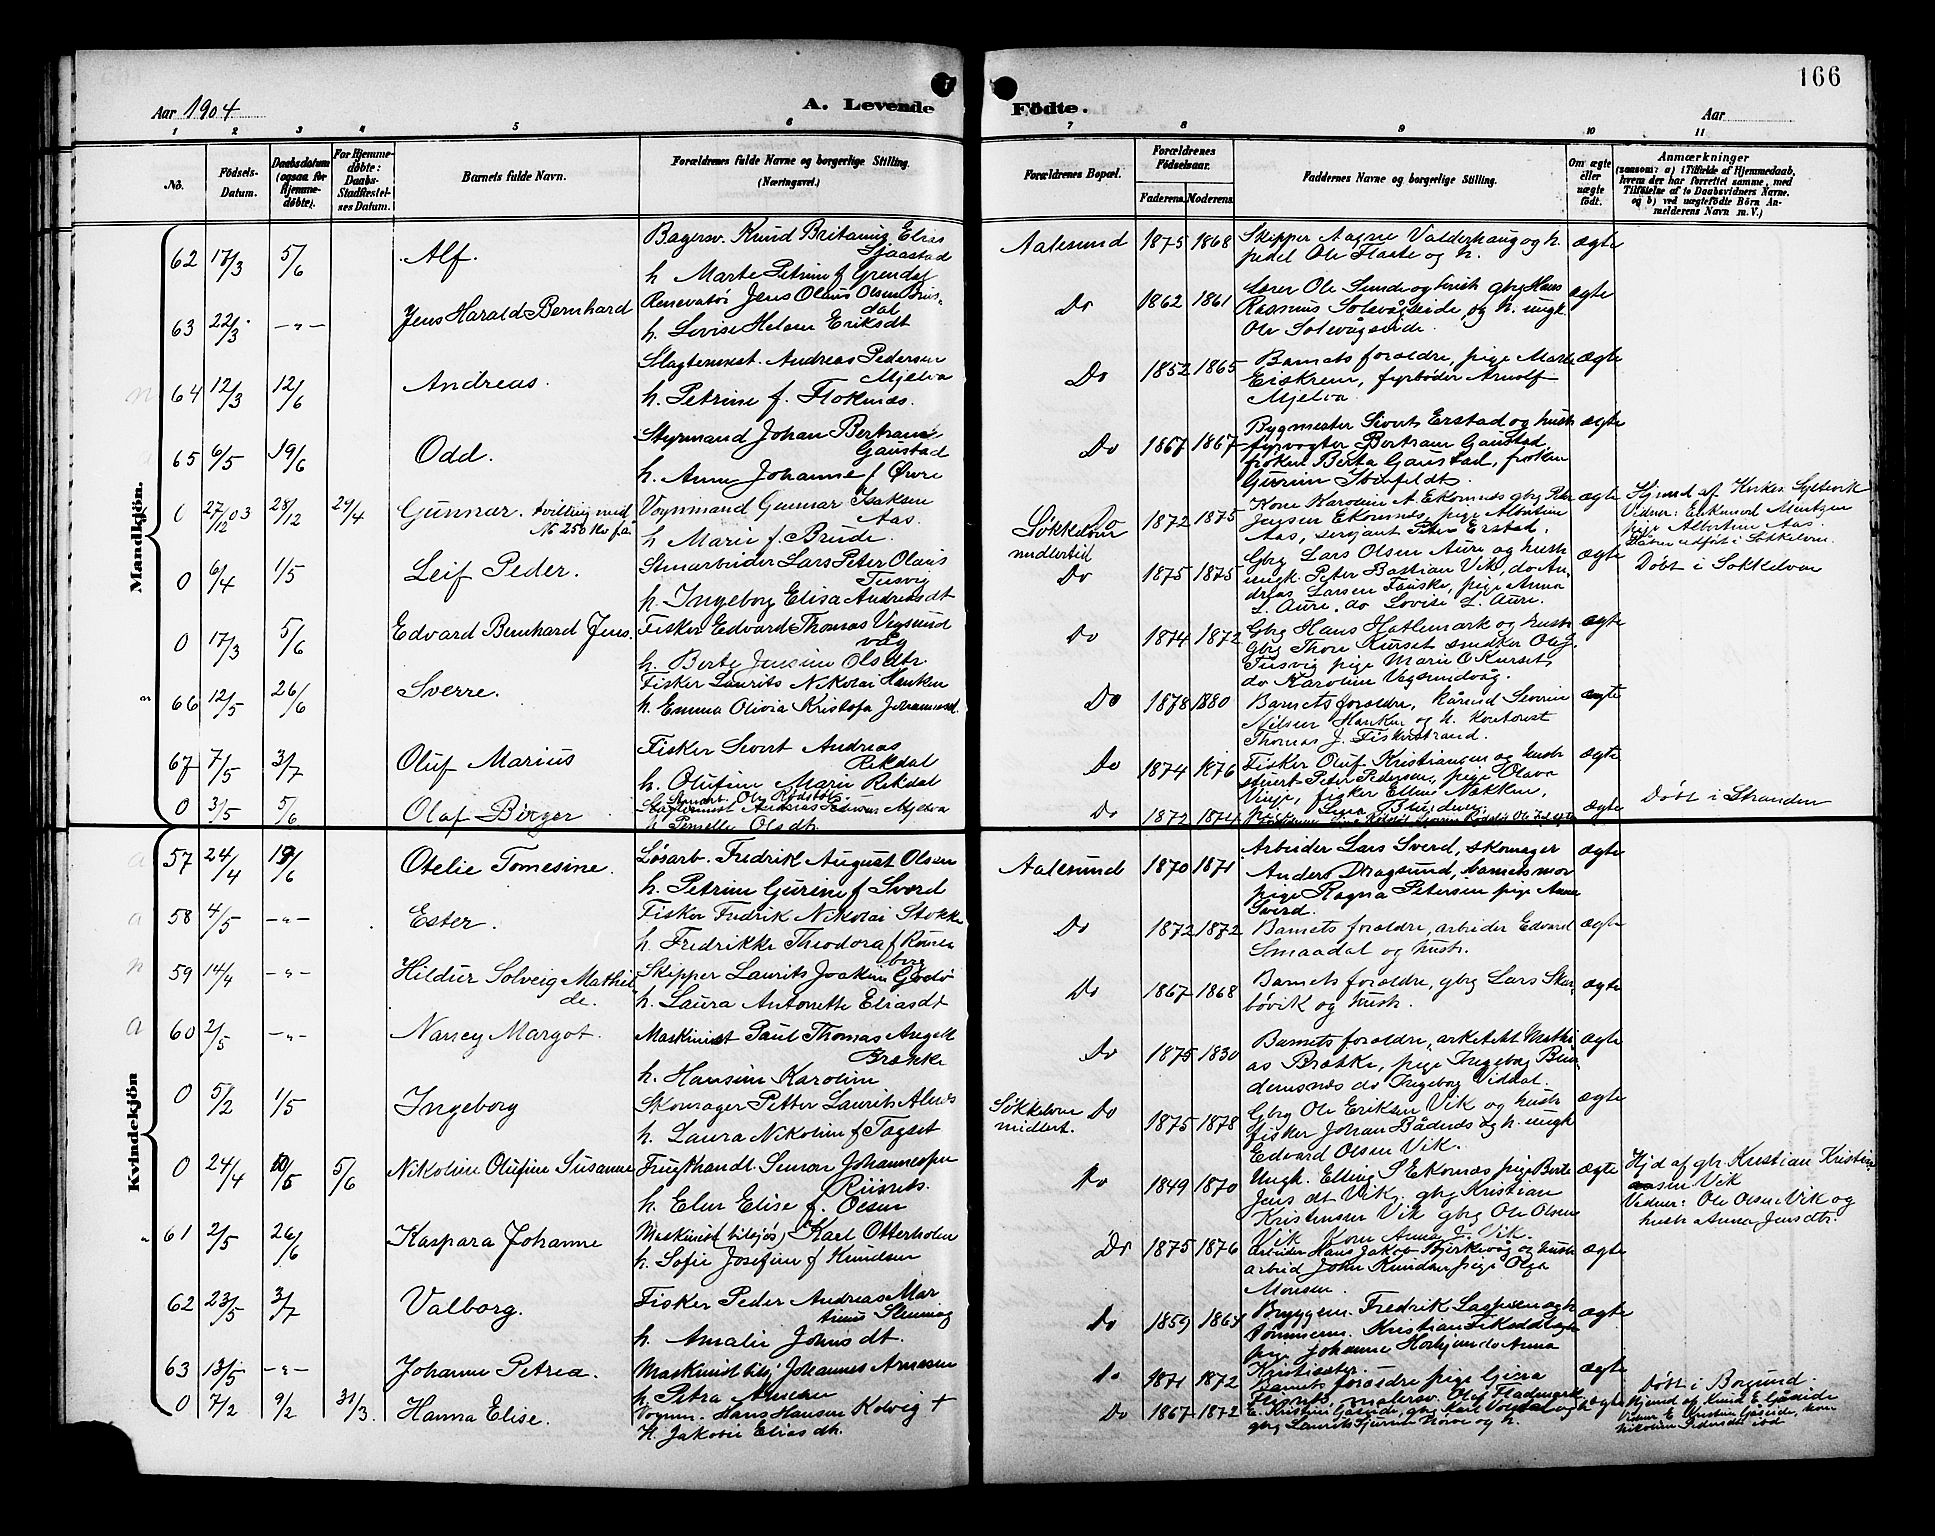 166
Aar 1904
A. Levende
Födte.
Aar
1 2 3 4 5 6 7 8 9 10 11
No.
Födsels-Datum.
Daabsdatum (ogsaa for Hjemme-döbte).
For Hjemme-döbte: Daabs-Stadfæstel-ses Datum.
Barnets fulde Navn.
Forældrenes fulde Navne og borgerlige Stilling. (Næringsvei.)
Forældrenes Bopæl.
Forældrenes Födselsaar.
Faderens. Moderens.
Faddernes Navne og borgerlige Stilling.
Om ægte eller uægte födt.
Anmærkninger (saasom: a) i Tilfælde af Hjemmedaab, hvem der har forrettet samme, med Tilföielse af to Daabsvidners Navne. og b) ved uægtefödte Börn Anmelderens Navn m. V.)
Mandkjön.
62 17/3 5/6 Alf.
Bagersv. Knud Britanus Elias
Sjaastad
h. Marte Petrine f Grendst
Aalesund 1875 1868
Skipper Aagne Valderhaug og h.
pedel Ole Flaate og h.
ægte
63 22/3 -"- Jens Harald Bernhard
Renovatør Jens Olaus Olsen Bris-
dal
h. Lovise Helene Eriksdt
Do 1862 1861
Lærer Ole Sunde og hustr gbrg Hans
Rasmus Solevågseide, og h. ungk
Ole Solevågseide.
ægte
64 12/3 12/6 Andreas.
Slagtermest. Andreas Pedersen
Mjelva
h. Petrine f. Floknæs.
Do 1852 1865
Barnets forældre, pige Marte
Eiskrem, fyrbøder Arnolf
Mjelva.
ægte
65 6/5 19/6 Odd.
Styrmand Johan Bertram
Gaustad
h. Anna Johanne f Øvre
Do 1867 1867
Bygmester Sivert Erstad og hustr
fyrvogter Bertram Gaustad
frøken Berta Gaustad, frøken
Gurine Steinfeldt.
ægte
0 27/12 03 28/12 24/4 Gunnar. tvilling med
No 258
Vognmand Gunnar Isaksen
Aas
h Marie f. Brude.
Do
Søkkelven
midlertid
1872 1875
Kone Karoline A. Ekornnes gbrg Peter
Jensen Ekornnes, pige Albertine
Aas, sersjant Peter Erstad.
ægte
Vidner: Enkemand Mentzen
pige Albertine Aas.
0 6/4 1/5 Leif Peder.
Stenarbeider Lars Peter Olaus
Tusvig
h. Ingeborg Elisa Andreasdt
Do 1875 1875
Gbrg Lars Olsen Aure og hustr
ungk. Peter Bastian Vik, do An-
dreas Larsen Fauske, pige Anna
L. Aure, do Lovise L. Aure.
ægte
Døbt i Søkkelven
0 17/3 5/6 Edvard Bernhard Jens.
Fisker Edvard Thomas Vegsund
våg
h. Berte Jensine Olsdtr
Do 1874 1872
Gbrg Hans Hatlemark og hustr
gbrg Thore Kurset snedker Ole J.
Tusvig pige Marie O Kurset,
do Karoline Vegsundvåg.
ægte
66 12/5 26/6 Sverre.
Fisker Laurits Nikolai Hanken
h. Emma Olivia Kristofa Johannesd.
Do 1878 1880
Barnets forældre, kårmd Severin
Nilsen Hanken og h. kontorist
Thomas J. Fiskerstrand.
ægte
67 7/5 3/7 Oluf Marius
Fisker Sivert Andreas
Rekdal
h. Olufine Marie Rekdal
Do 1874 1876
Fisker Oluf Kristiansen og hustr
stuert Peter Pedersen, pige Olava
Vinje, fisker Elling Nakken,
ægte
0 3/5 5/6 Olaf Birger
h Pernelle Olsdt.
Do 1872 1874
ægte
Døbt i Stranden
Kvindekjön
57 24/4 19/6 Otelie Tomesine.
Løsarb. Fredrik August Olsen
h. Petrine Gurine f Sverd
Aalesund 1870 1871
Arbeider Lars Sverd, skomager
Anders Dragsund, barnets mor
pige Ragna Petersen pige Anna
Sverd.
ægte
58 4/5 -"- Ester.
Fisker Fredrik Nikolai Stokke
h. Fredrikke Theodora f Romer
Do 1872 1872
Barnets forældre, arbeider Edvard
Smaadal og hustr.
ægte
59 14/4 -"- Hildur Solveig Mathil
de.
Skipper Laurits Joakim Godø
h. Laura Antonette Eliasdt
Do 1867 1868
Barnets forældre, gbrg Lars Skar-
bøvik og hustr.
ægte
60 2/5 -"- Nancy Margot.
Maskinist Paul Thomas Angell
Brække
h. Hansine Karoline
Do 1875 1830
Barnets forældre, arkitekt Mathi
as Brække, pige Ingeborg Bin-
dernsnæs do Ingeborg Viddal.
ægte
0 5/2 1/5 Ingeborg
Skomager Petter Laurits Alnes
h. Laura Nikoline f Tagset
Søkkelven Do
midlert.
1875 1878
Gbrg Ole Eriksen Vik og hustr
fisker Johan Bådnes og h. ungk
Edvard Olsen Vik.
ægte
0 24/4 10/5 5/6 Nikoline Olufine Susanne
Frugthandl. Simon Johannessen
Riisnæs.
h. Elen Elise f. Olsen
Do 1849 1870
Ungk. Elling S Ekornæs pige Berte
Jens dt Vik. gbrg Kristian
Kristensen Vik gbrg Ole Olsen
Vik Kone Anna J. Vik.
ægte
Hjd af gbr. Kristian Kristin
asen Vik
Vidner: Ole Olsen Vik og
hustr Anna Jensdtr.
61 2/5 26/6 Kaspara Johanne
Maskinist (tilsjøs) Karl Otterholm
h. Sofie Josefine f Knudsen
Do 1875 1876
arbeider Hans Jakob Bjerkevåg og hustr
arbeid John Knudsen pige Olga
Monsen.
ægte
62 23/5 3/7 Valborg.
Fisker Peder Andreas Mar
tinus Slinning
h. Amalie Johns dt.
Do 1859 1864
Bryggem. Fredrik Laspersen og h
Tømmerm. Kristian Fiksdal og h
pige Johanne Horhjem do Anna
Kristiseter.
ægte
63 13/5 -"- Johanne Petrea.
Maskinist tilsj. Johannes Arnesen
h. Petra Arnesen
Do 1871 1872
Barnets forældre pige Gjera
Flisnes, malersv. Olaf Flademark
ægte
0 7/2 9/2 31/3 Hanna Elise.
Vognm. Hans Hansen Kolvig +
h. Jakobie Eliasdt.
Do 1867 1872
ægte
Døbt i Borgund.